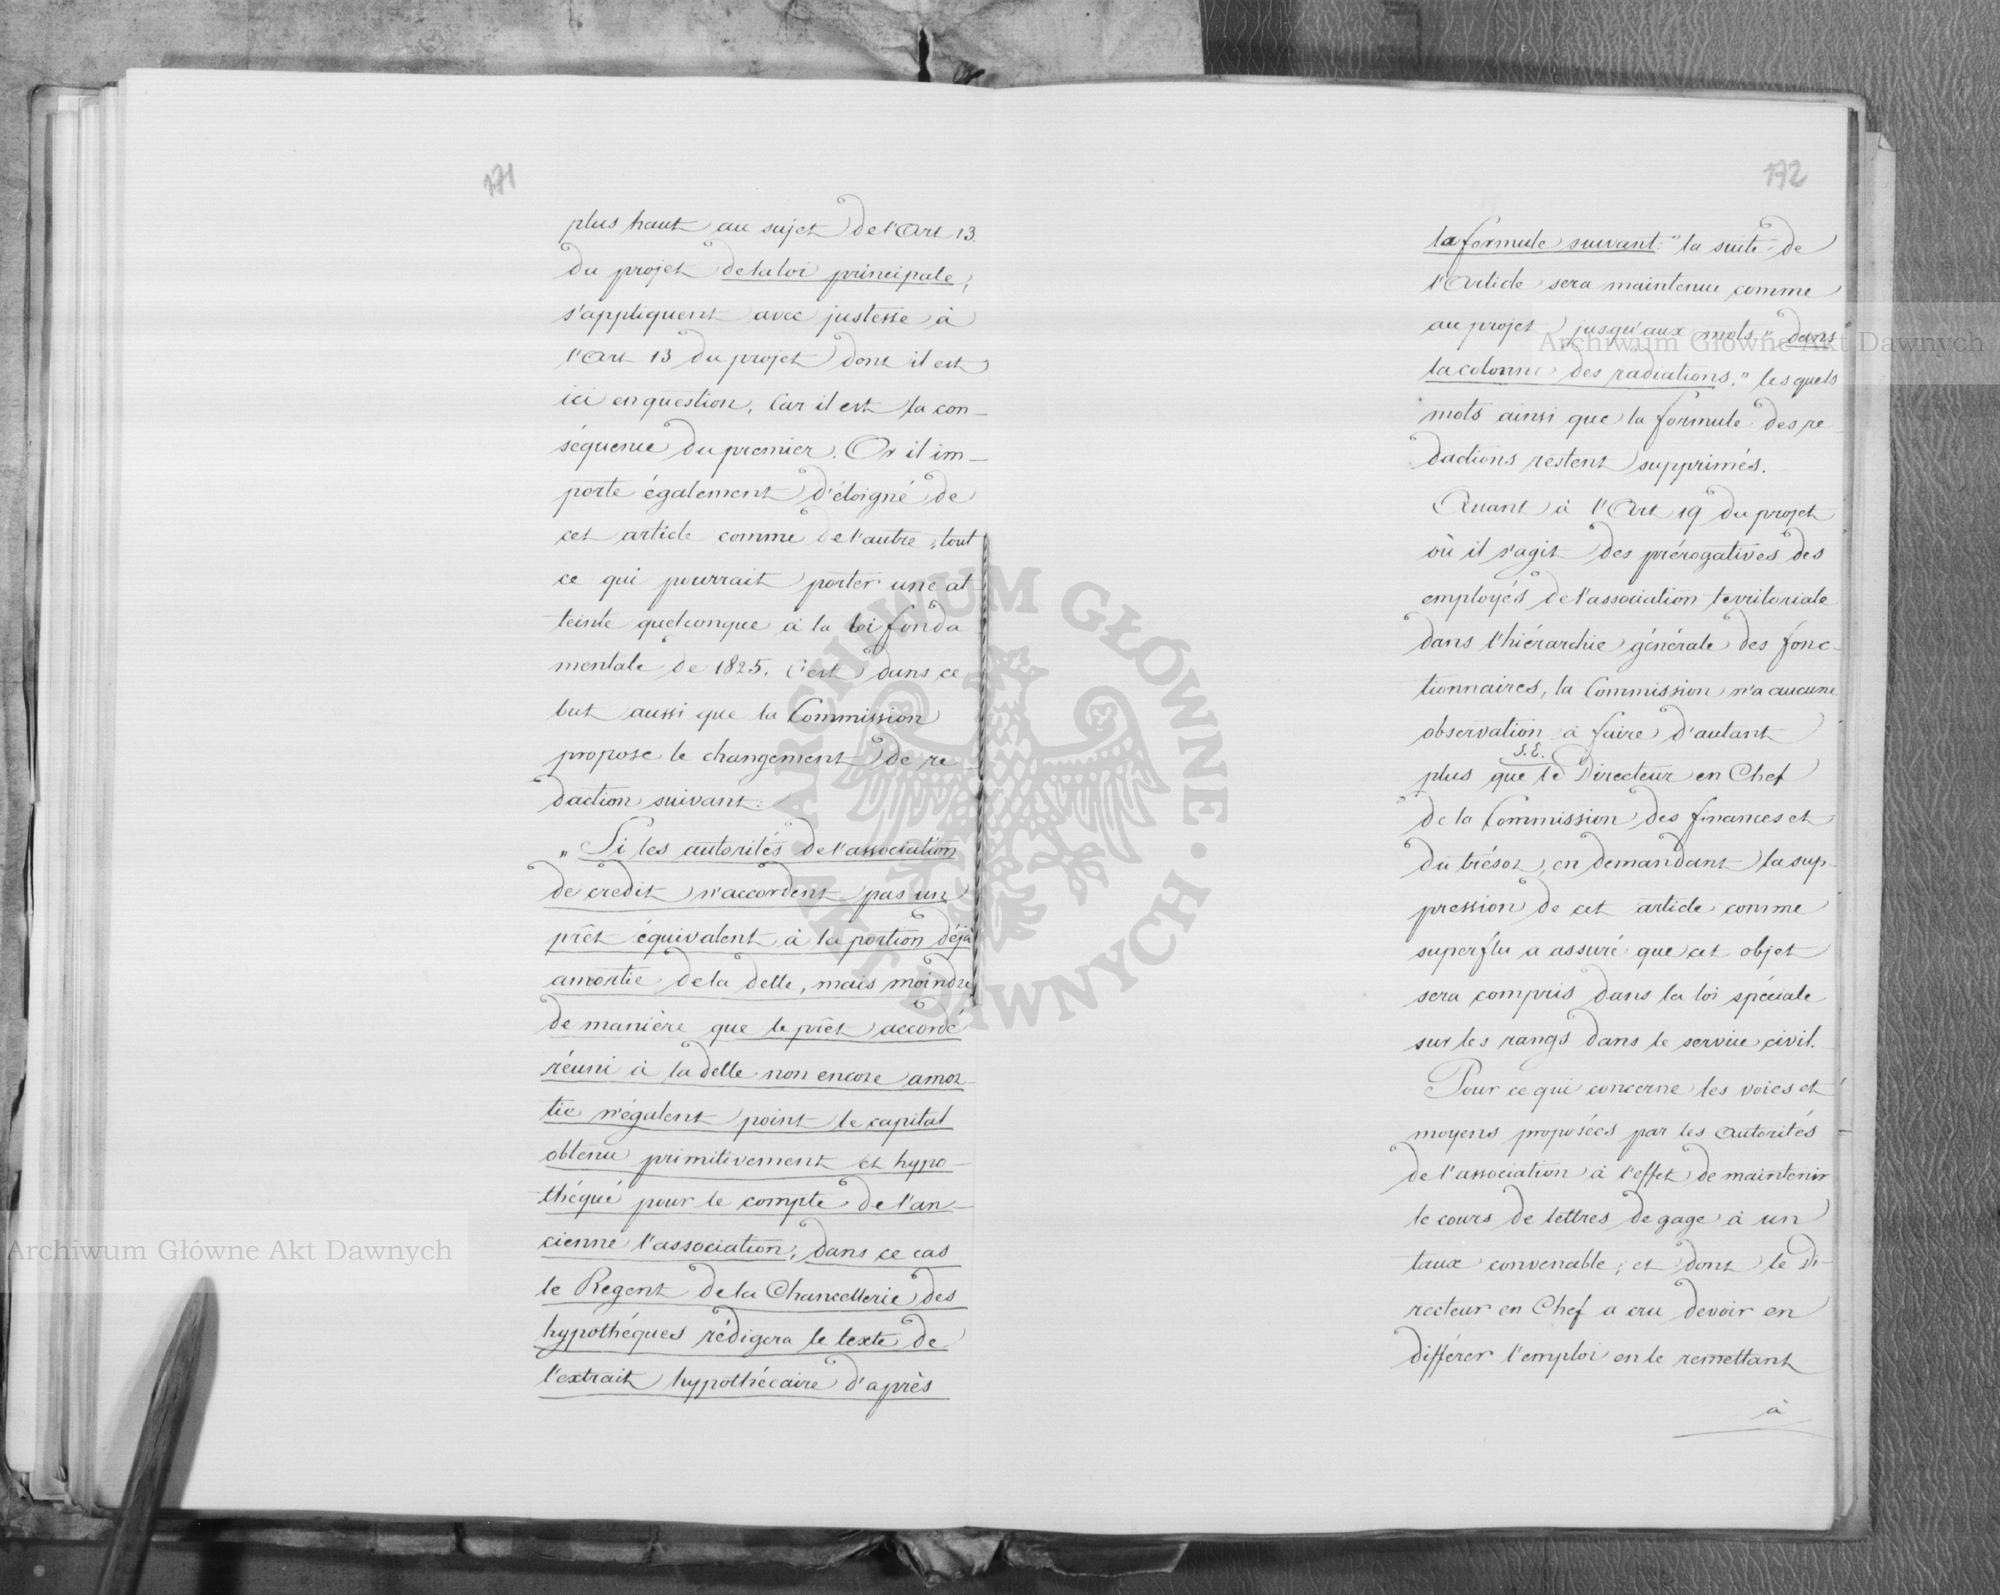 171
plus haut au sujet de l'Art 13.
du projet de la loi principale,
s'appliquent avec justesse à
l'Art 13 du projet dont il est
ici en question, Car il est la con-
séquence du premier. Or il im-
porte également d'éloigné de
cet article comme de l'autre, tout
ce qui pourrait porter une at-
teinte quelconque à la loi fonda
mentale de 1825. C'est dans ce
but aussi que la Commission
propose le changement de re
daction suivant:
„Si les autorités de l'association
de credit n'accordent pas un
prêt équivalent à la portion déjà
amortie de la dette, mais moindre
de manière que le prêt accordé
réuni à la dette non encore amor-
tie n'égalent point le capital
obtenu primitivement et hypo-
théqué pour le compte de l'an-
cienne l'association, dans ce cas
le Regent de la Chancellerie des
hypothéques rédigera le texte de
l'extrait hypothécaire d'après
172
la formule suivant: "la suite de
l'Article sera maintenue comme
au projet jusqu'aux mots "dans
la colonne des radiations," les quels
mots ainsi que la formule des re
dactions restent supprimés.
Quant à l'Art 19 du projet
où il s'agit des prérogatives des
employés de l'association territoriale
dans l'hiérarchie générale des fonc-
tionnaires, la Commission n'a aucune
observation à faire d'autant
S.E.
plus que le Directeur en Chef
de la Commission des finances et
du trésor, en demandant la sup-
pression de cet article comme
superflu a assuré que cet objet
sera compris dans la loi spéciale
sur les rangs dans le service civil.
Pour ce qui concerne les voies et
moyens proposées par les autorités
de l'association à l'effet de maintenir
le cours de lettres de gage à un
taux convenable; et dont le Di-
recteur en Chef a cru devoir en
différer l'emploi en le remettant
à
Archiwum Główne Akt Dawnych
Archiwum Główne Akt Dawnych
ARCHIWUM GŁÓWNE · AKT DAWNYCH ·